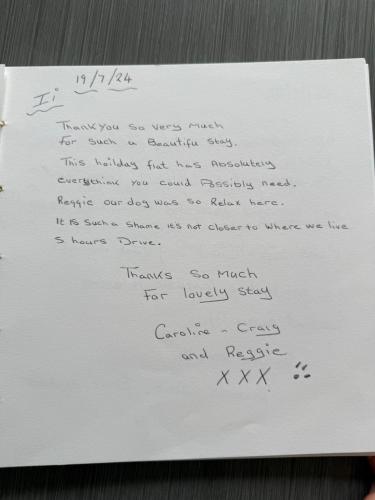 19/7/24
Ii
Thank you so very much
for such a Beautifu stay.
This hoilday flat has Absolutely
everythink you could Possibly need.
Reggie our dog was so Relax here.
It is such a shame its not closer to where we live
5 hours Drive.
Thanks So Much
For lovely stay
Caroline - Craig
and Reggie
XXX